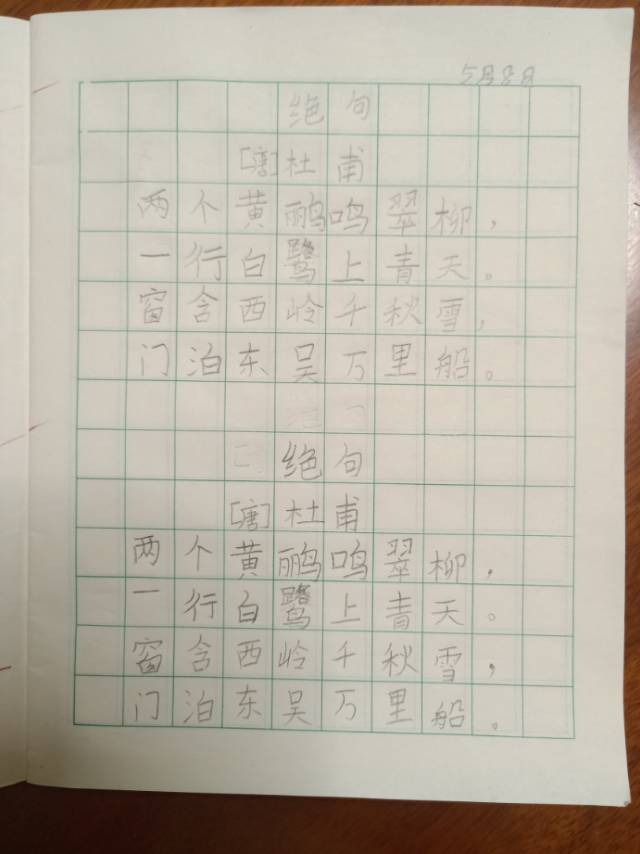 5月8日
绝句
[唐]杜甫
两个黄鹂鸣翠柳，
一行白鹭上青天。
窗含西岭千秋雪，
门泊东吴万里船。
绝句
[唐]杜甫
两个黄鹂鸣翠柳，
一行白鹭上青天。
窗含西岭千秋雪，
门泊东吴万里船。